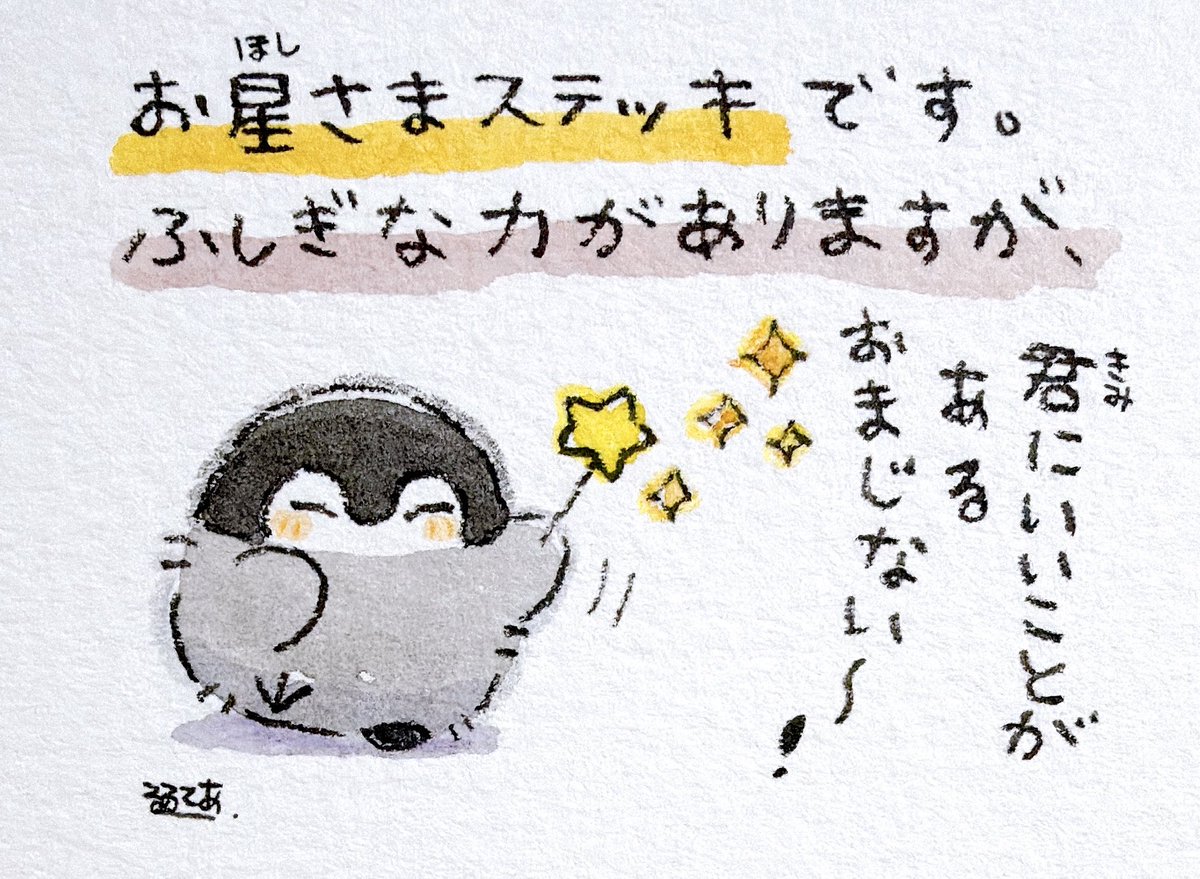 お星さまステッキです。
ほし
ふしぎな力がありますが、
君にいいことが
きみ
ある
おまじない〜！
るるてあ.